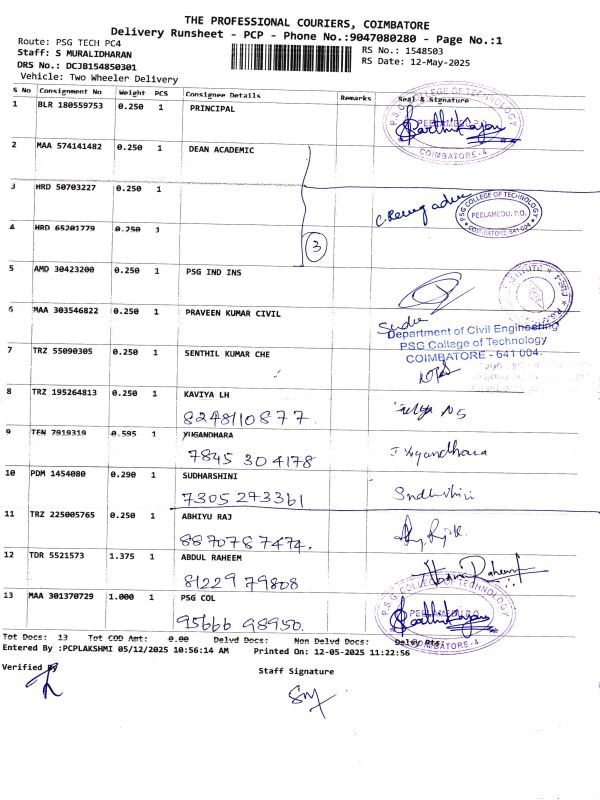 THE PROFESSIONAL COURIERS, COIMBATORE
Delivery Runsheet - PCP - Phone No.:9047080280 - Page No.:1
Route: PSG TECH PC4
RS No.: 1548503
Staff: S MURALIDHARAN
RS Date: 12-May-2025
DRS No.: DCJB154850301
Vehicle: Two Wheeler Delivery
S No Consignment No Weight PCS Consignee Details Remarks Seal & Signature
1 BLR 180559753 0.250 1 PRINCIPAL
P.S.G. COLLEGE OF TECHNOLOGY
PEELAMEDU P.O.
Karthikayan
COIMBATORE-4
2 MAA 574141482 0.250 1 DEAN ACADEMIC
3 HRD 50703227 0.250 1
PSG COLLEGE OF TECHNOLOGY
PEELAMEDU. P.O.
COIMBATORE 641 004
4 HRD 65201779 0.250 1
3
5 AMD 30423200 0.250 1 PSG IND INS
6 MAA 303546822 0.250 1 PRAVEEN KUMAR CIVIL
Department of Civil Engineering
PSG College of Technology
COIMBATORE - 641 004.
7 TRZ 55090305 0.250 1 SENTHIL KUMAR CHE
8 TRZ 195264813 0.250 1 KAVIYA LH
8248110877
9 TEN 7919319 0.595 1 YUGANDHARA
7845 304178
J Yugandhara
10 PDM 1454080 0.290 1 SUDHARSHINI
7305293361
11 TRZ 225005765 0.250 1 ABHIYU RAJ
8870787474.
12 TDR 5521573 1.375 1 ABDUL RAHEEM
81229 79808
13 MAA 301370729 1.000 1 PSG COL
95666 98950
P.S.G. COLLEGE OF TECHNOLOGY
PEELAMEDU P.O.
Karthikayan
COIMBATORE-4
Tot Docs: 13 Tot COD Amt: 0.00 Delvd Docs: Non Delvd Docs: Delvy Pts:
Entered By :PCPLAKSHMI 05/12/2025 10:56:14 AM Printed On: 12-05-2025 11:22:56
Verified By
Staff Signature